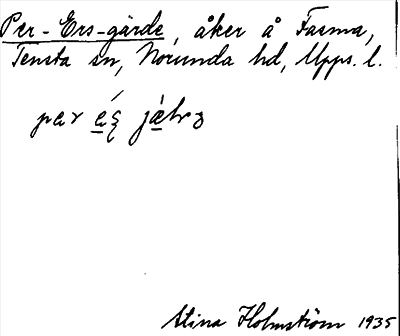 Per-Ers-gärde, åker å Fasma,
Tensta sn, Norunda hd, Upps. l.
Stina Holmström 1935